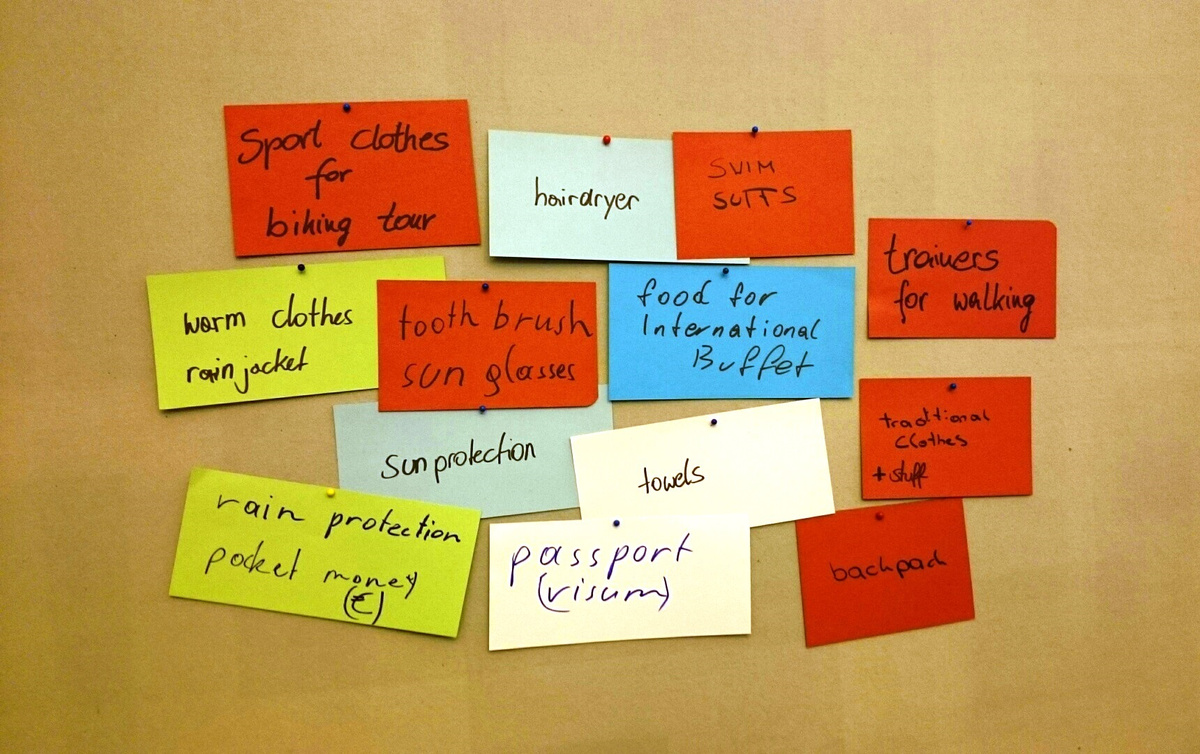 Sport clothes
for
biking tour
hairdryer
SVIM
SUITS
trainers
for walking
warm clothes
rainjacket
tooth brush
sun glasses
food for
International
Buffet
traditional
clothes
+ stuff
sun protection
towels
rain protection
pocket money
(€)
passport
(visum)
backpack